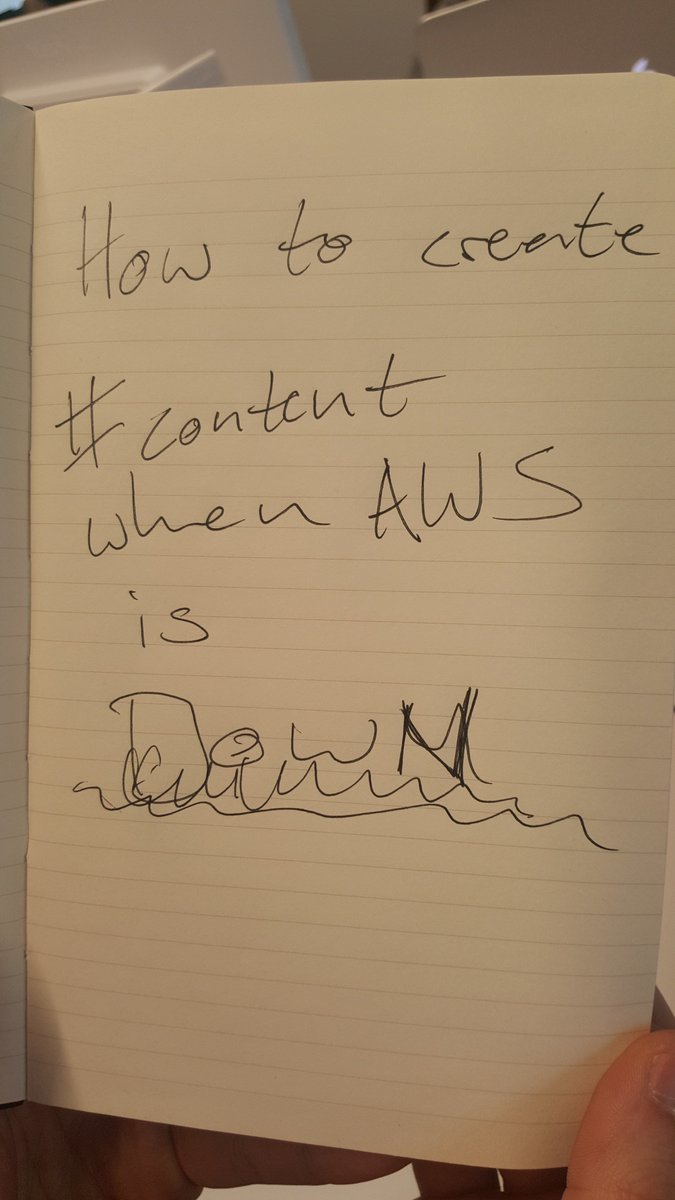 How to create
#content
when AWS
is
DowN